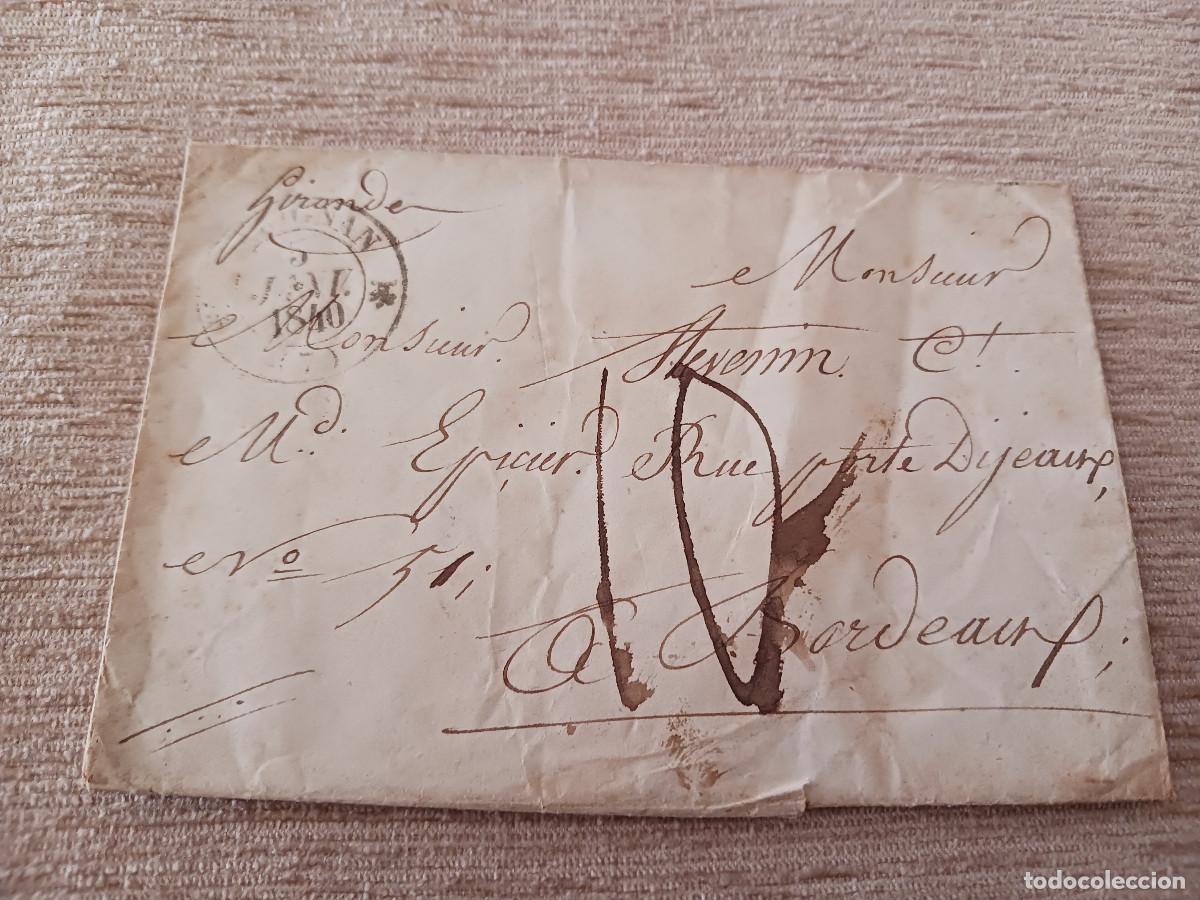 Gironde
5
1840
Monsieur
Monsieur Stevenin Ct.
Md. Epicier Rue porte Dijeaux,
No 51;
10
A Bordeaux;
todocoleccion